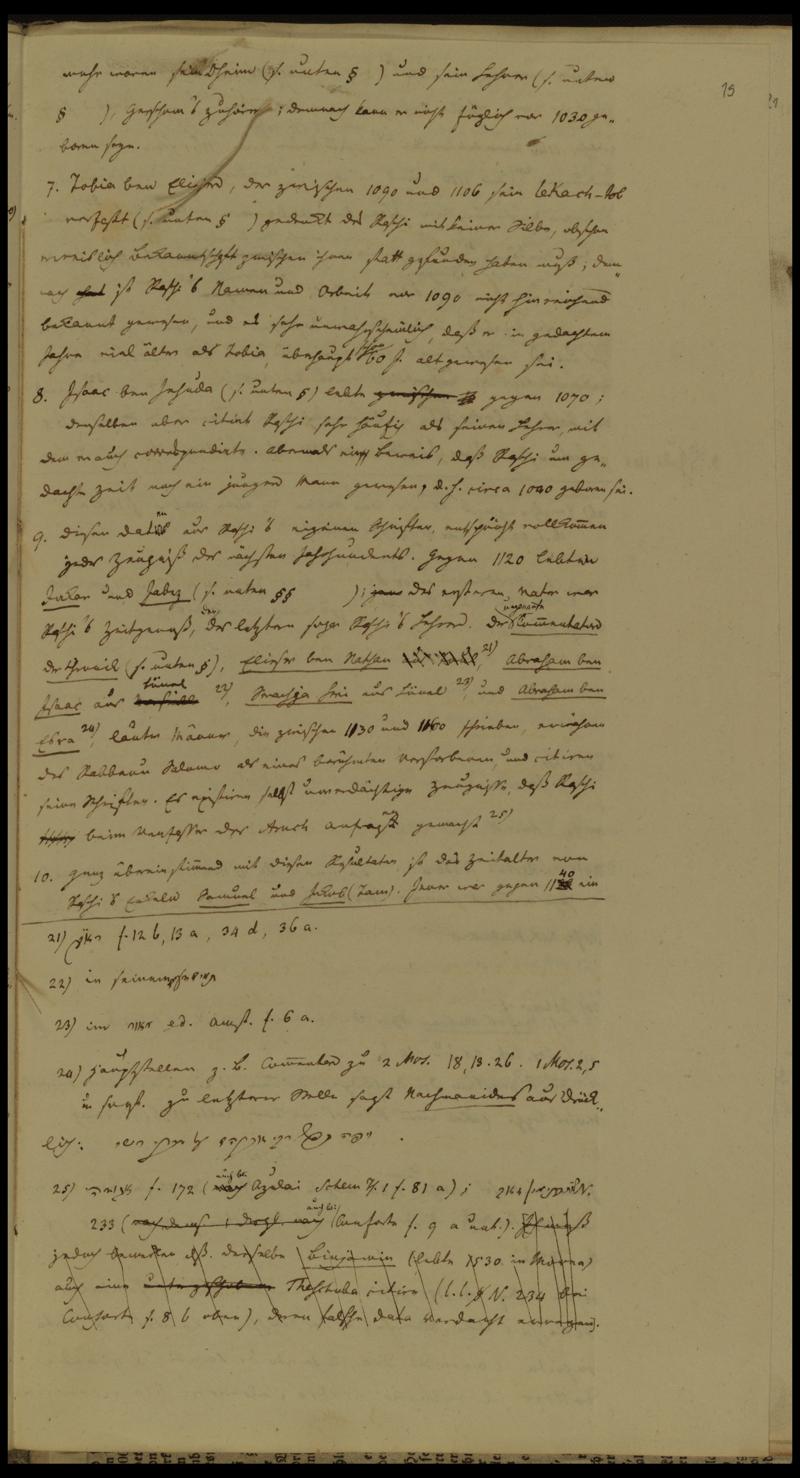 15
mehr waren sein Oheim (s. unten § ) und sein Lehrer (s. unten
§ ), Gerschom's Zuhörer; demnach kann er nicht füglich vor 1030 ge„
boren seyn.
7. Tobia ben Elieser, der zwischen 1090 und 1106 sein lekach-tob
verfasst (s. unten § ) gedenkt des Raschi mit keiner Silbe, obschon
Bekanntschaft zwischen ihnen statt gefunden haben muß; dem„
nach ist Raschi's Namen und Arbeit vor 1090 nicht hinreichend
bekannt gewesen, und es sehr unwahrscheinlich, daß er in gedachtem
Jahre viel älter als Tobia, überhaupt 60 J. alt gewesen sei.
8. Isaac ben Jehuda (s. unten §) lebte zwischen gegen 1070;
denselben aber citirt Raschi sehr häufig als seinen Lehrer, mit
dem er auch correspondirte. Abermals ein Beweis, daß Raschi um ge„
dachte Zeit noch ein junger Mann gewesen, d. h. circa 1040 geboren sei.
9. Diesen Daten aus Raschi's eigenen Schriften, entspricht vollkommen
jedes Zeugniß des nächsten Jahrhunderts. Gegen 1120 lebten
und (s. unten §§ ); des ersteren Vater war
Raschi's Zeitgenoß, der des letztern sogar Raschi's Lehrer. Der ungenannte Commentator
der Chronik (s. unten §), Elieser ben Nathan 21), Abraham ben
Isaac aus Lünel 22), Serachja Levi aus Lünel 23), und Abraham ben
Esra 24), lauter Männer, die zwischen 1130 und 1160 schrieben, erwähnen
des Rabbenu Salomo als eines berühmten Verstorbenen, und citiren
seine Schriften. Es existiren selbst unverdächtige Zeugnisse, daß Raschi
beim Verfasser des Aruch Anfragen gemacht 25)
10. Ganz übereinstimmend mit diesen Resultaten ist das Zeitalter von
Raschi's Enkeln Samuel und Jakob (Tam). Jener war gegen 1140 ein
21) f. 12 b, 13 a, 34 d, 36 a.
22) in seinem
23) im מאור ed. Amst. f. 6 a.
24) Hauptstellen z. B. Commentar zu 2 Mos. 18, 13. 26. 1 Mos. 2, 5
u. sonst. Zu letzterer Stelle sagt Nachmanides ausdrück„
lich:
25) f. 172 (auch bei Azulai Schem Th. 1 f. 81 a); N.
233 (auch bei Conforte f. 9 a unt.).
jedoch bemerken daß derselbe Binjamin (lebte 1530 in Morea)
auch eine Theschuba citirt (l. l. N. 234 bei
Conforte f. 8 b oben), deren falsche Data Verdacht erregen).